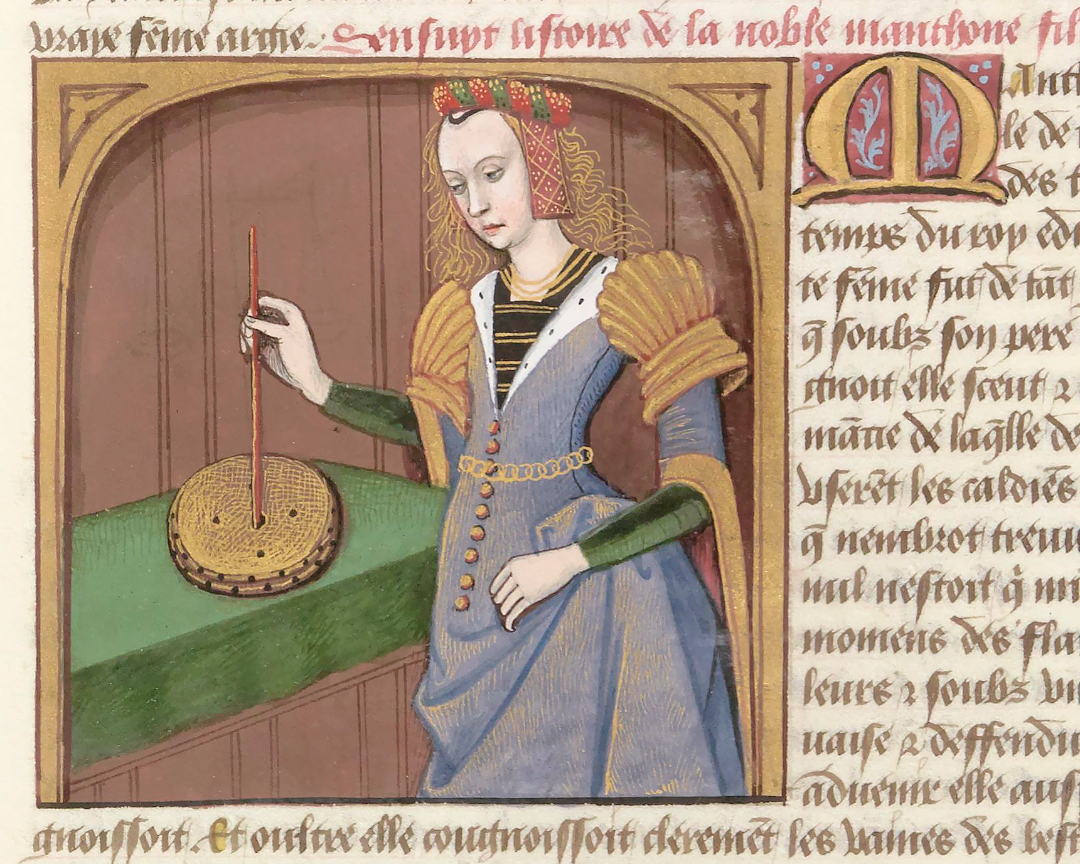 vraye fẽme argie. Sensuyt listoire de la noble manthone fil
Mant
le de
des t
temps du roy edi
te fẽme fut de tãt
q̃ soubz son pere
gnoit elle sceut ⁊
mãtie de laq̃lle de
vserẽt les caldiẽs
q̃ nembrot treuu
nul nestoit q̃ mi
momens des fla
leurs ⁊ soubz vn
uaise ⁊ deffendu
aduenir elle aus
gnoissoit. Et oultre elle cougnoissoit cleremẽt les vaines des best